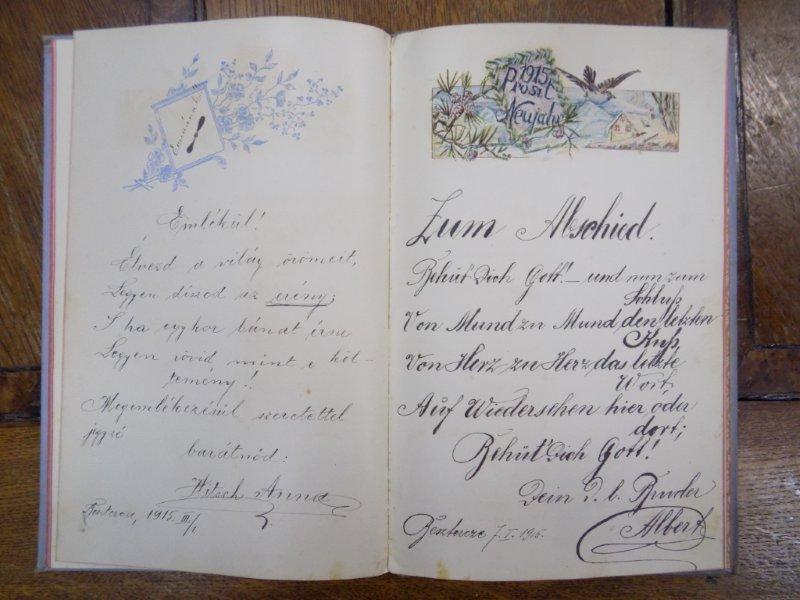 Emlékül!
Élvezd a világ örömeit,
Legyen díszed az erény;
S ha egykor bánat érne
Legyen rövid, mint e köl-
temény!!
Megemlékezésül szeretettel
jegyző
barátnőd:
Hitsch Anna
1915. III/1
1915
Prosit
Neujahr
Zum Abschied.
Behüt Dich Gott! – und nun zum
Schluß
Von Mund zu Mund den letzten
Kuß,
Von Herz zu Herz das letzte
Wort,
Auf Wiedersehen hier oder
dort;
Behüt Dich Gott!
Dein D. l. Bruder
Albert
Besztercze 7. I. 1915.